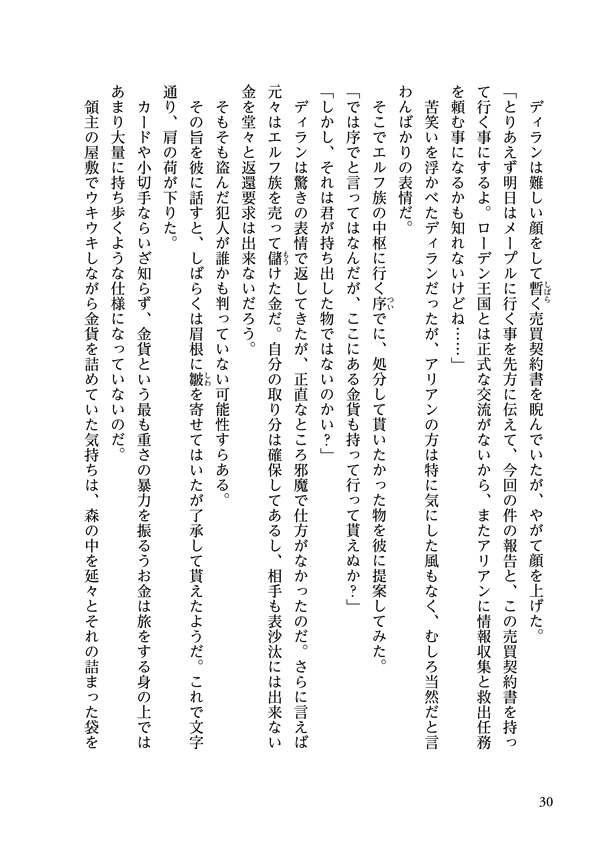 ディランは難しい顔をして暫く売買契約書を睨んでいたが、やがて顔を上げた。
「とりあえず明日はメープルに行く事を先方に伝えて、今回の件の報告と、この売買契約書を持っ
て行く事にするよ。ローデン王国とは正式な交流がないから、またアリアンに情報収集と救出任務
を頼む事になるかも知れないけどね……」
苦笑いを浮かべたディランだったが、アリアンの方は特に気にした風もなく、むしろ当然だと言
わんばかりの表情だ。
そこでエルフ族の中枢に行く序でに、処分して貰いたかった物を彼に提案してみた。
「では序でと言ってはなんだが、ここにある金貨も持って行って貰えぬか？」
「しかし、それは君が持ち出した物ではないのかい？」
ディランは驚きの表情で返してきたが、正直なところ邪魔で仕方がなかったのだ。さらに言えば
元々はエルフ族を売って儲けた金だ。自分の取り分は確保してあるし、相手も表沙汰には出来ない
金を堂々と返還要求は出来ないだろう。
そもそも盗んだ犯人が誰かも判っていない可能性すらある。
その旨を彼に話すと、しばらくは眉根に皺を寄せてはいたが了承して貰えたようだ。これで文字
通り、肩の荷が下りた。
カードや小切手ならいざ知らず、金貨という最も重さの暴力を振るうお金は旅をする身の上では
あまり大量に持ち歩くような仕様になっていないのだ。
領主の屋敷でウキウキしながら金貨を詰めていた気持ちは、森の中を延々とそれの詰まった袋を
しばら
つい
もう
しわ
30